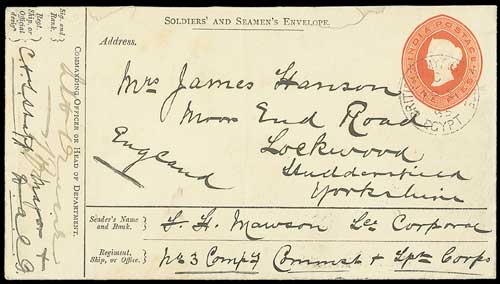 SOLDIERS' AND SEAMEN'S ENVELOPE.
INDIA POSTAGE
NINE PIES
EGYPT
Address.
Mrs James Hanson
Moor End Road
Lockwood
Huddersfield
Yorkshire
England
Sender's Name and Rank. J. H. Mawson Lce Corporal
Regiment, Ship, or Office. No 3 Compy Commst & Tpt Corps
Sig. and Rank.
Regt. Ship, or Official design.
COMMANDING OFFICER OR HEAD OF DEPARTMENT.